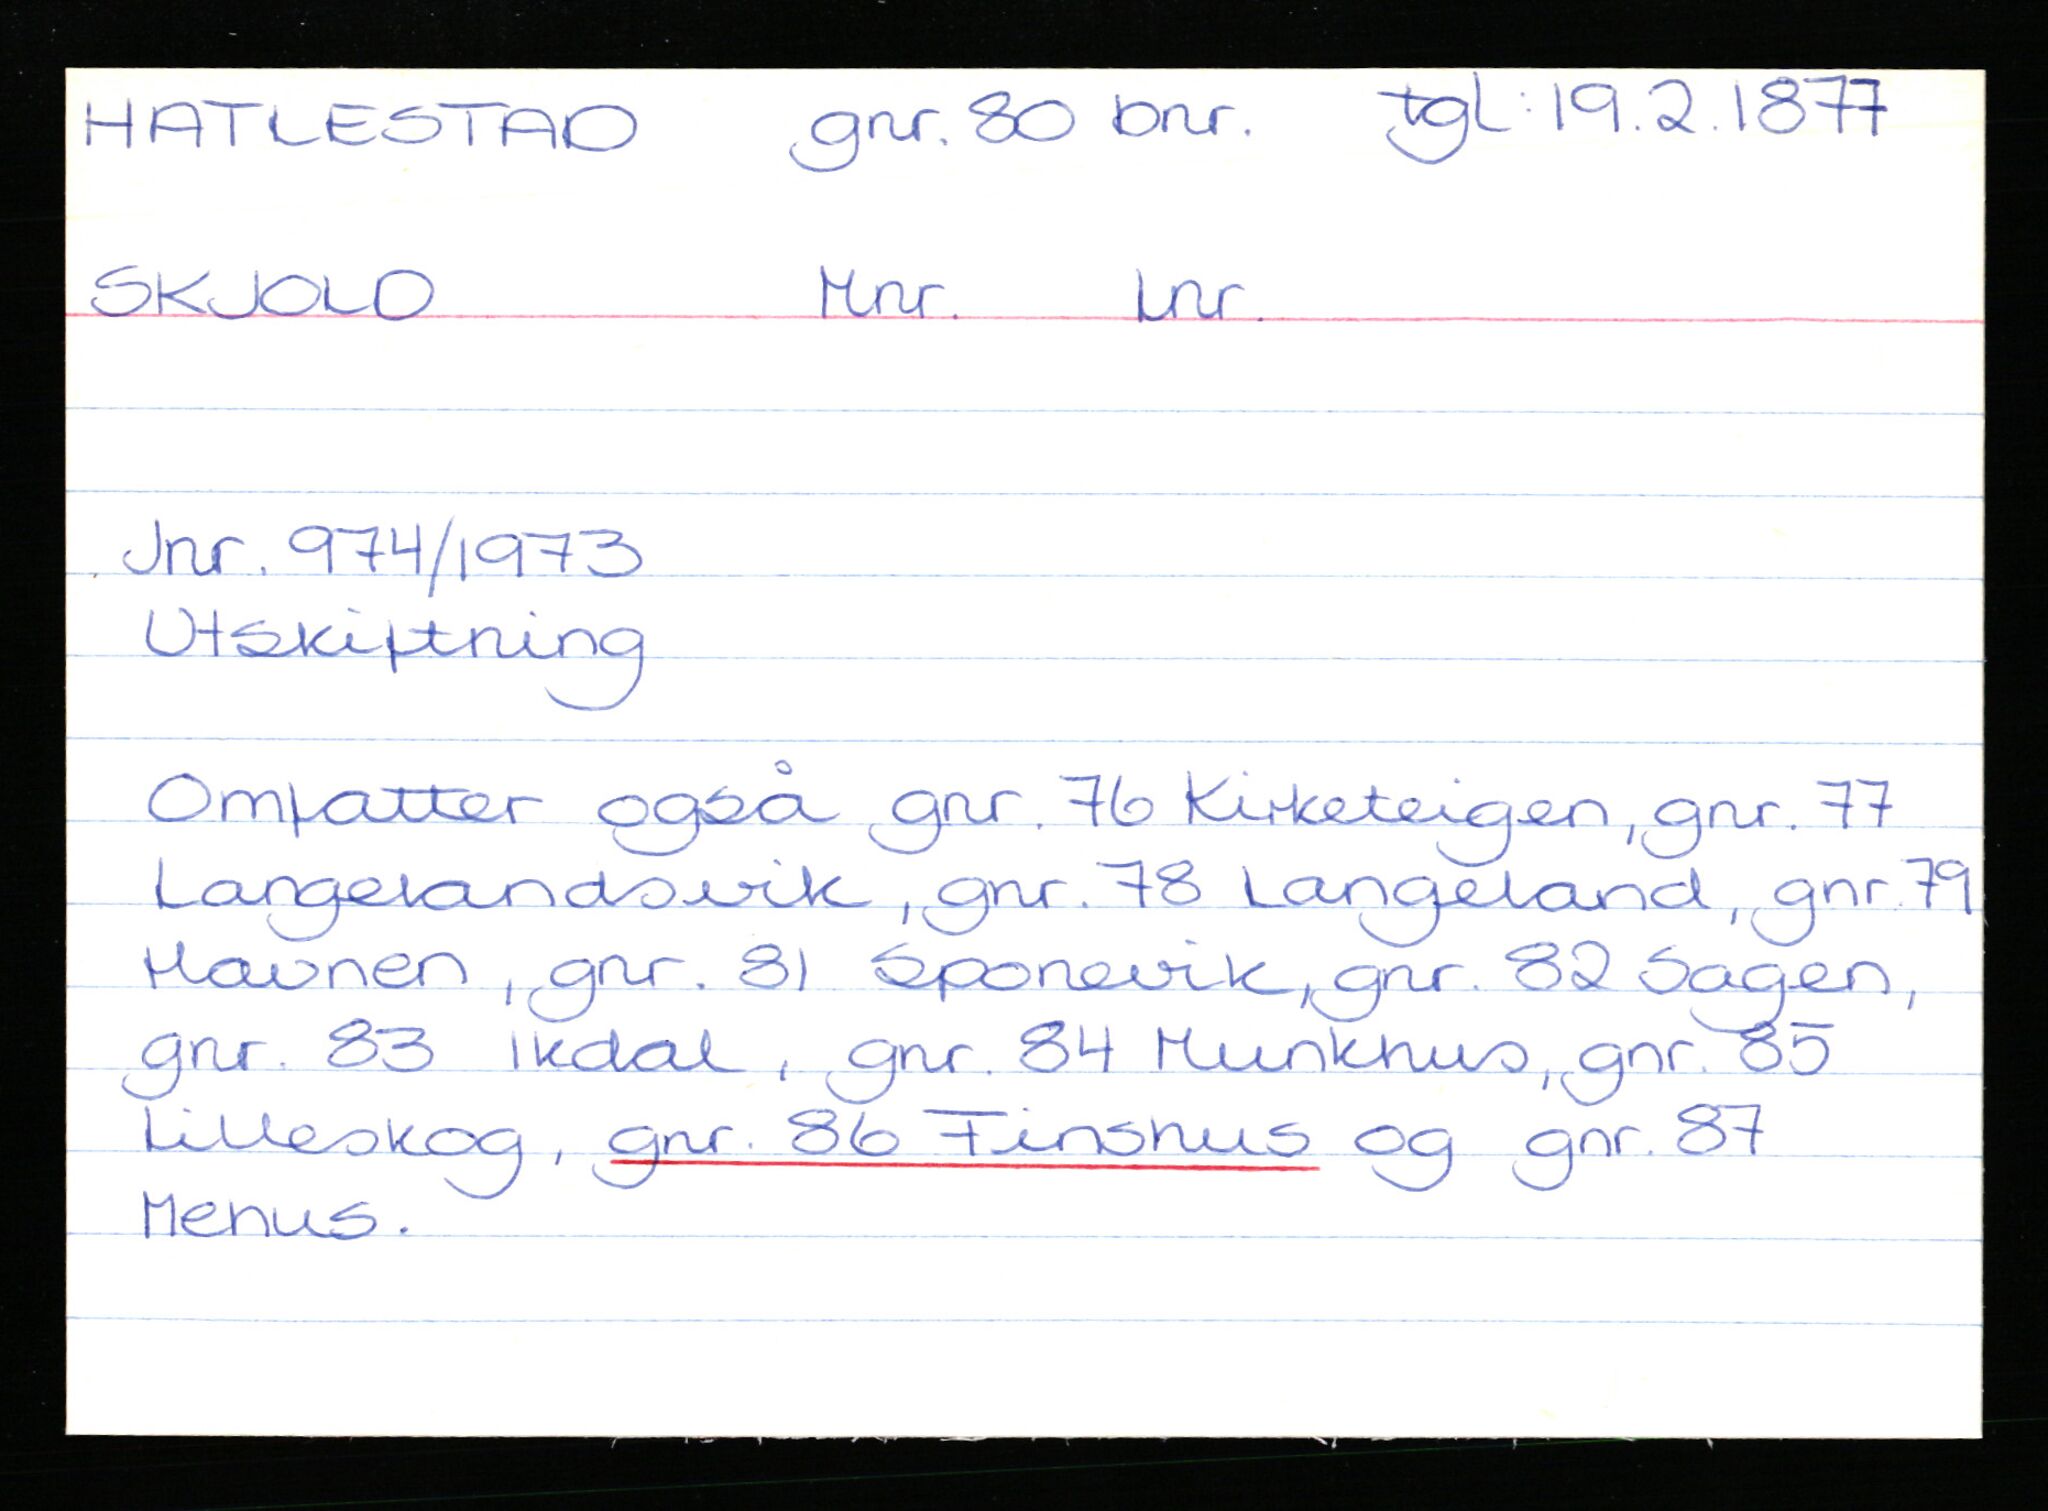 HATLESTAD gnr. 80 bnr. tgl: 19.2.1877
SKJOLD Mnr. Lnr.
Jnr. 974/1973
Utskiftning
Omfatter også gnr. 76 Kirketeigen, gnr. 77
Langelandsvik, gnr. 78 Langeland, gnr. 79
Havnen, gnr. 81 Sponevik, gnr. 82 Sagen,
gnr. 83 Ikdal, gnr. 84 Munkhus, gnr. 85
Lilleskog, gnr. 86 Finshus og gnr. 87
Menus.